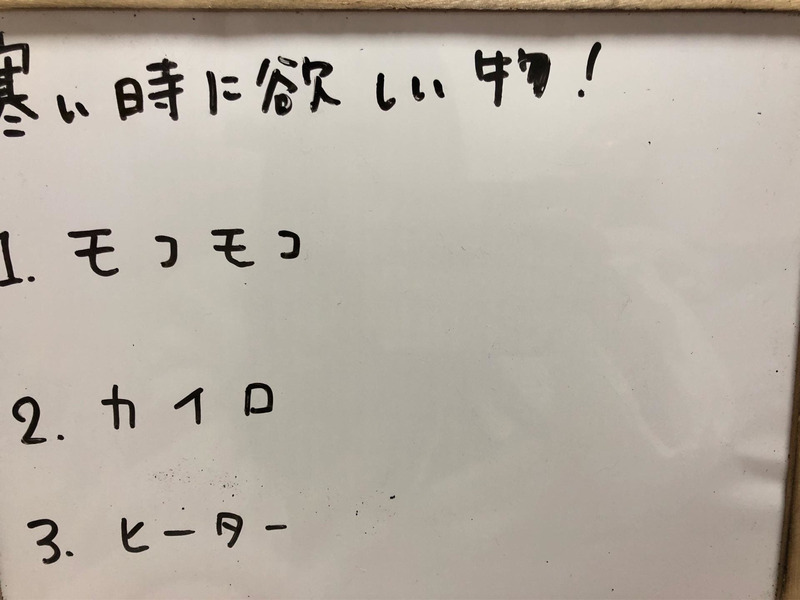 寒い時に欲しい物!
1. モコモコ
2. カイロ
3. ヒーター